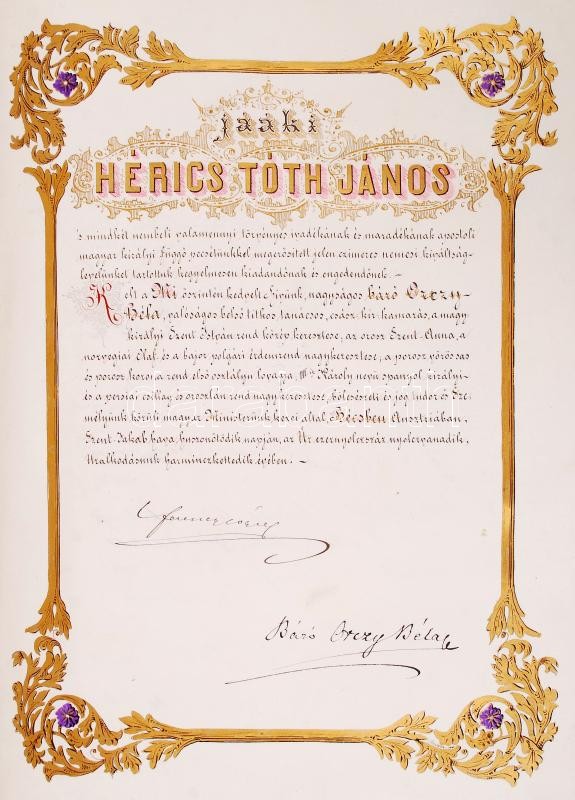 jaaki
HÉRICS TÓTH JÁNOS
's mindkét nembeli valamennyi törvényes ivadékának és maradékának apostoli
magyar királyi függő pecsétünkkel megerősített jelen czimeres nemesi kiváltság-
levelünket tartottuk kegyelmesen kiadandónak és engedendőnek. –
Kelt a Mi őszintén kedvelt Hivünk, nagyságos báró Orczy
Béla, valóságos belső titkos tanácsos, csász. kir. kamarás, a magy.
királyi Szent István rend közép keresztese, az orosz Szent-Anna, a
norvégiai Olaf és a bajor polgári érdemrend nagykeresztese; a porosz vörös sas
és porosz korona rend első osztályu lovagja, IIIik Károly nevü spanyol királyi-
és a persiai csillag és oroszlán rend nagy keresztese, bölcsészeti és jog tudor és Sze-
mélyünk körüli magyar Ministerünk kezei által, Bécsben Ausztriában,
Szent-Jakab hava, huszonötödik napján, az Úr ezernyolczszáz nyolczvanadik,
Uralkodásunk harminczkettedik évében. –
Báró Orczy Béla